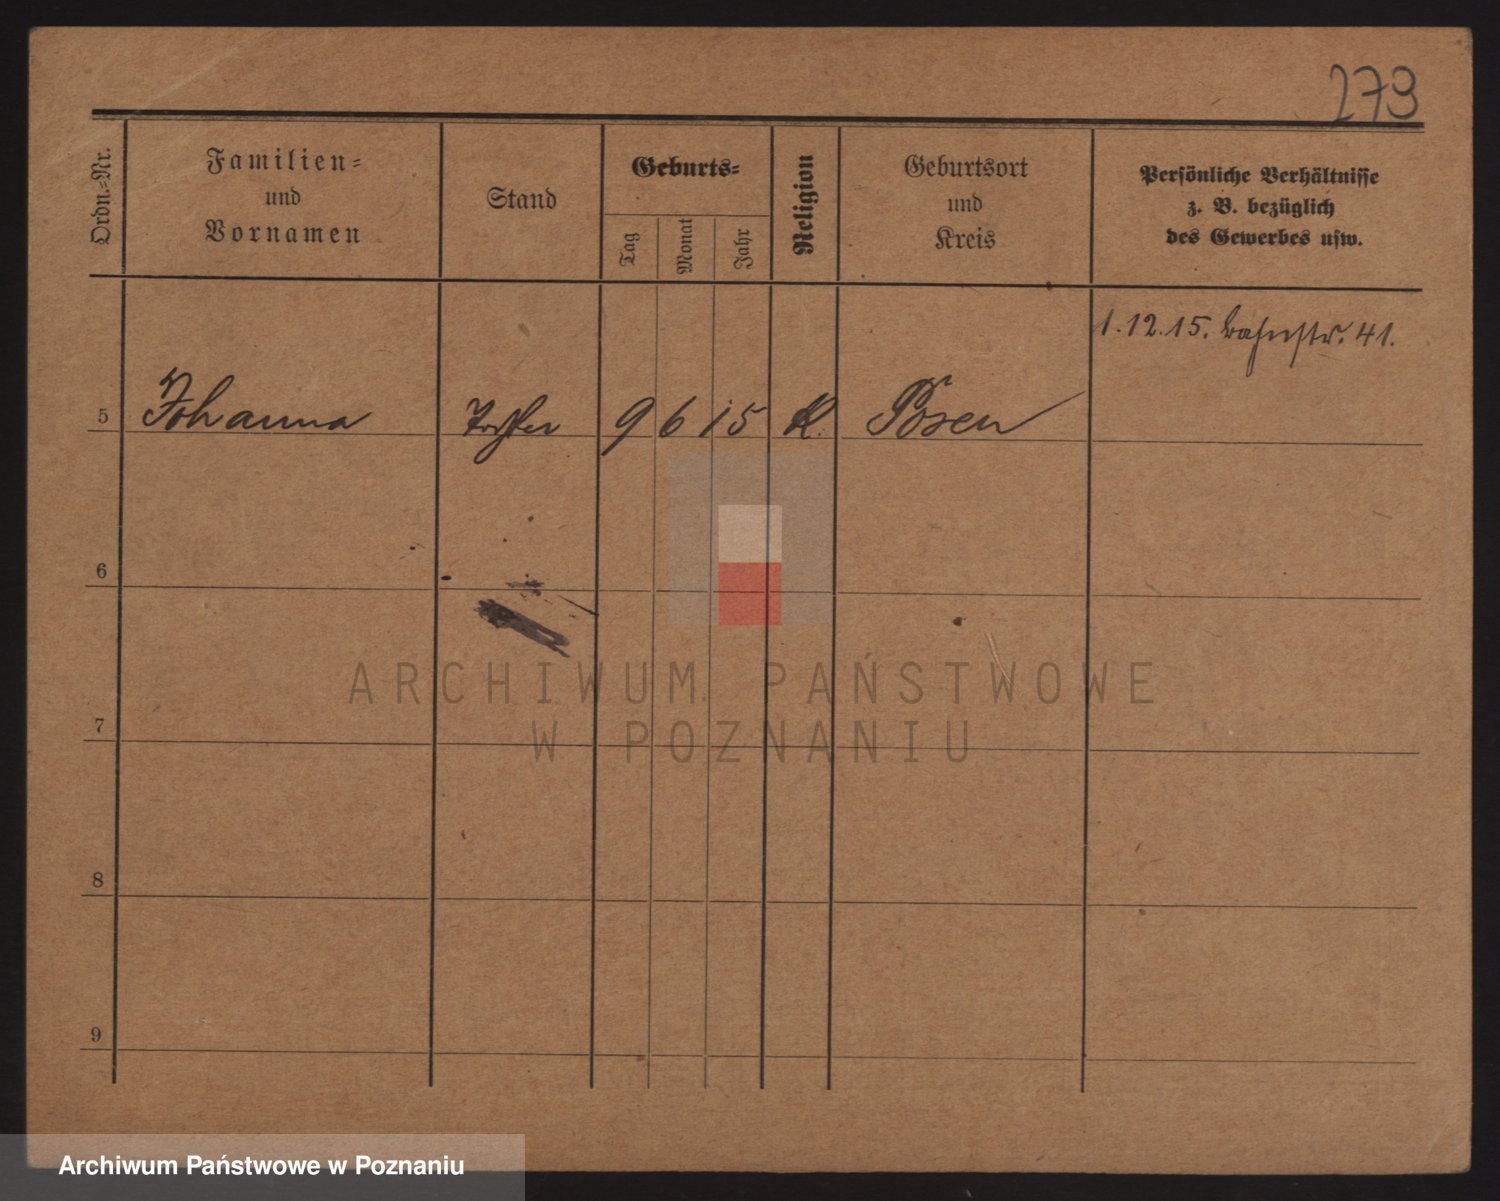 279
Ordn.-Nr.
Familien-
und
Vornamen
Stand
Geburts-
Tag
Monat
Jahr
Religion
Geburtsort
und
Kreis
Persönliche Verhältnisse
z. B. bezüglich
des Gewerbes usw.
1.12.15. Bahnstr. 41.
5 Johanna Tochter 9 6 15 K. Posen
6
7
8
9
ARCHIWUM PAŃSTWOWE
W POZNANIU
Archiwum Państwowe w Poznaniu